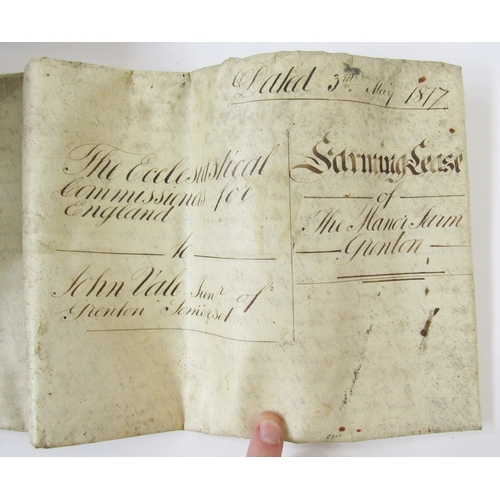 Dated 3rd May 1877
The Ecclesiastical
Commissioners for
England
to
John Vale Junr of
Grenton Somerset
Farming Lease
of
The Manor Farm
Grenton